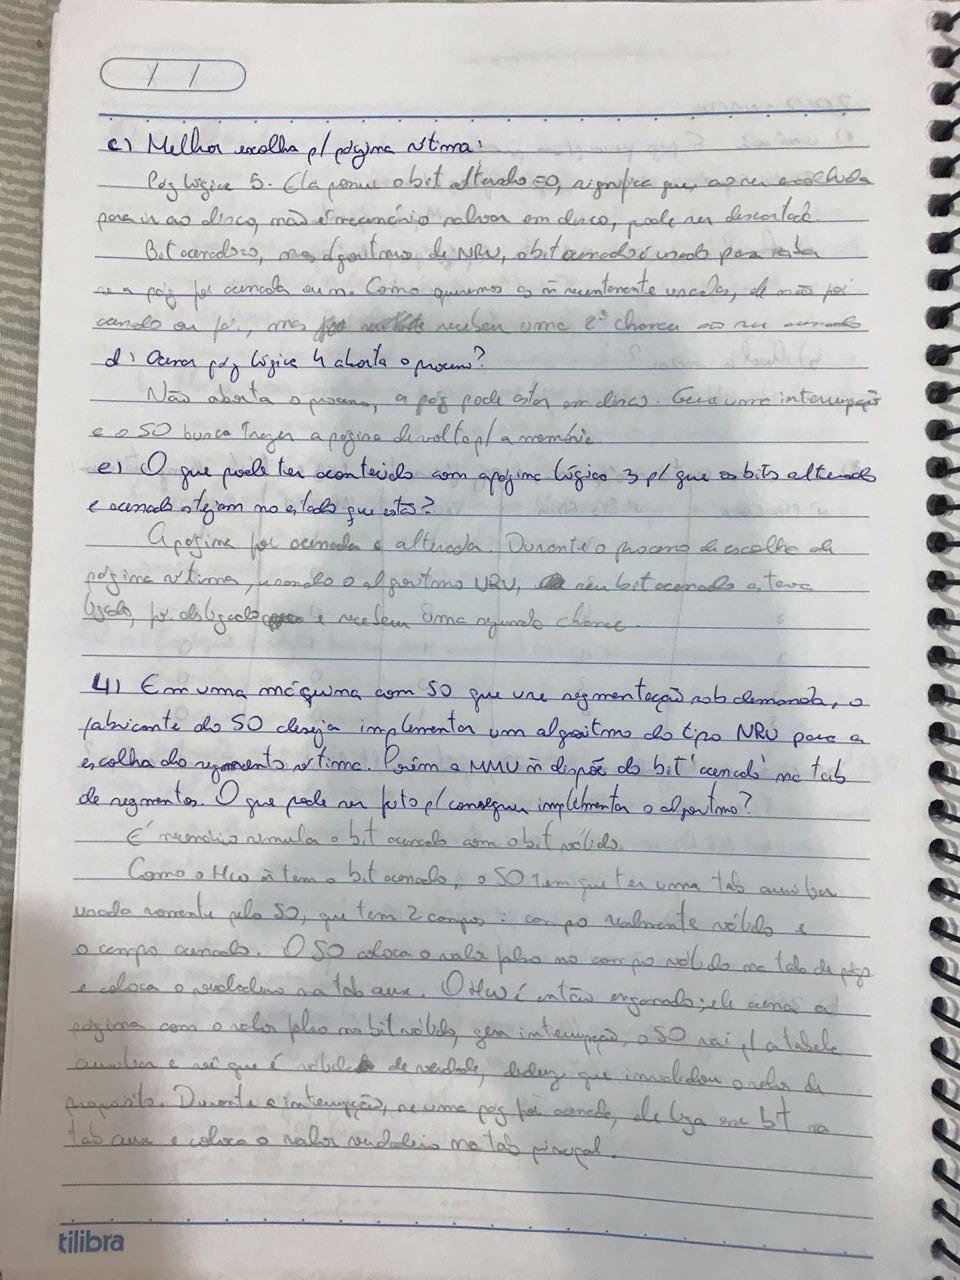 / /
c) Melhor escolha p/ página vítima:
Pág lógica 5. Ela possui o bit alterado=0, significa que, ao ser escolhida
para ir ao disco, não é necessário salvar em disco, pode ser descartada.
Bit acessado=0, no algoritmo de NRU, o bit acessado é usado para
se a pág foi acessada ou ñ. Como queremos as ñ recentemente usadas, ela não foi
acessado ou foi, mas recebeu uma 2ª chance ao ser acessado
d) Acessar pág lógica 4 aborta o processo?
Não aborta o processo, a pág pode estar em disco. Gera uma interrupção
e o SO busca trazer a página de volta p/ a memória.
e) O que pode ter acontecido com a página lógica 3 p/ que os bits alterado
e acessado estejam no estado que estão?
A página foi acessada e alterada. Durante o processo de escolha da
página vítima, usando o algoritmo NRU, seu bit acessado esteve
ligado, foi desligado e recebeu uma segunda chance.
4) Em uma máquina com SO que use segmentação sob demanda, o
fabricante do SO deseja implementar um algoritmo do tipo NRU para a
escolha do segmento vítima. Porém a MMU ñ dispõe do bit 'acessado' na tab
de segmentos. O que pode ser feito p/ conseguir implementar o algoritmo?
É necessário simular o bit acessado com o bit válido.
Como o HW ñ tem o bit acessado, o SO tem que ter uma tab auxiliar
usada somente pelo SO, que tem 2 campos: campo realmente válido e
o campo acessado. O SO coloca o valor falso no campo válido na tab de págs
e coloca o verdadeiro na tab aux. O HW é então enganado; ele acessa a
página com o valor falso no bit válido, gera interrupção, o SO vai p/ a tabela
auxiliar e vê que é válida de verdade, deduz que invalidou o valor de
propósito. Durante a interrupção, se uma pág foi acessada, ele liga esse bit na
tab aux e coloca o valor verdadeiro na tab principal.
tilibra